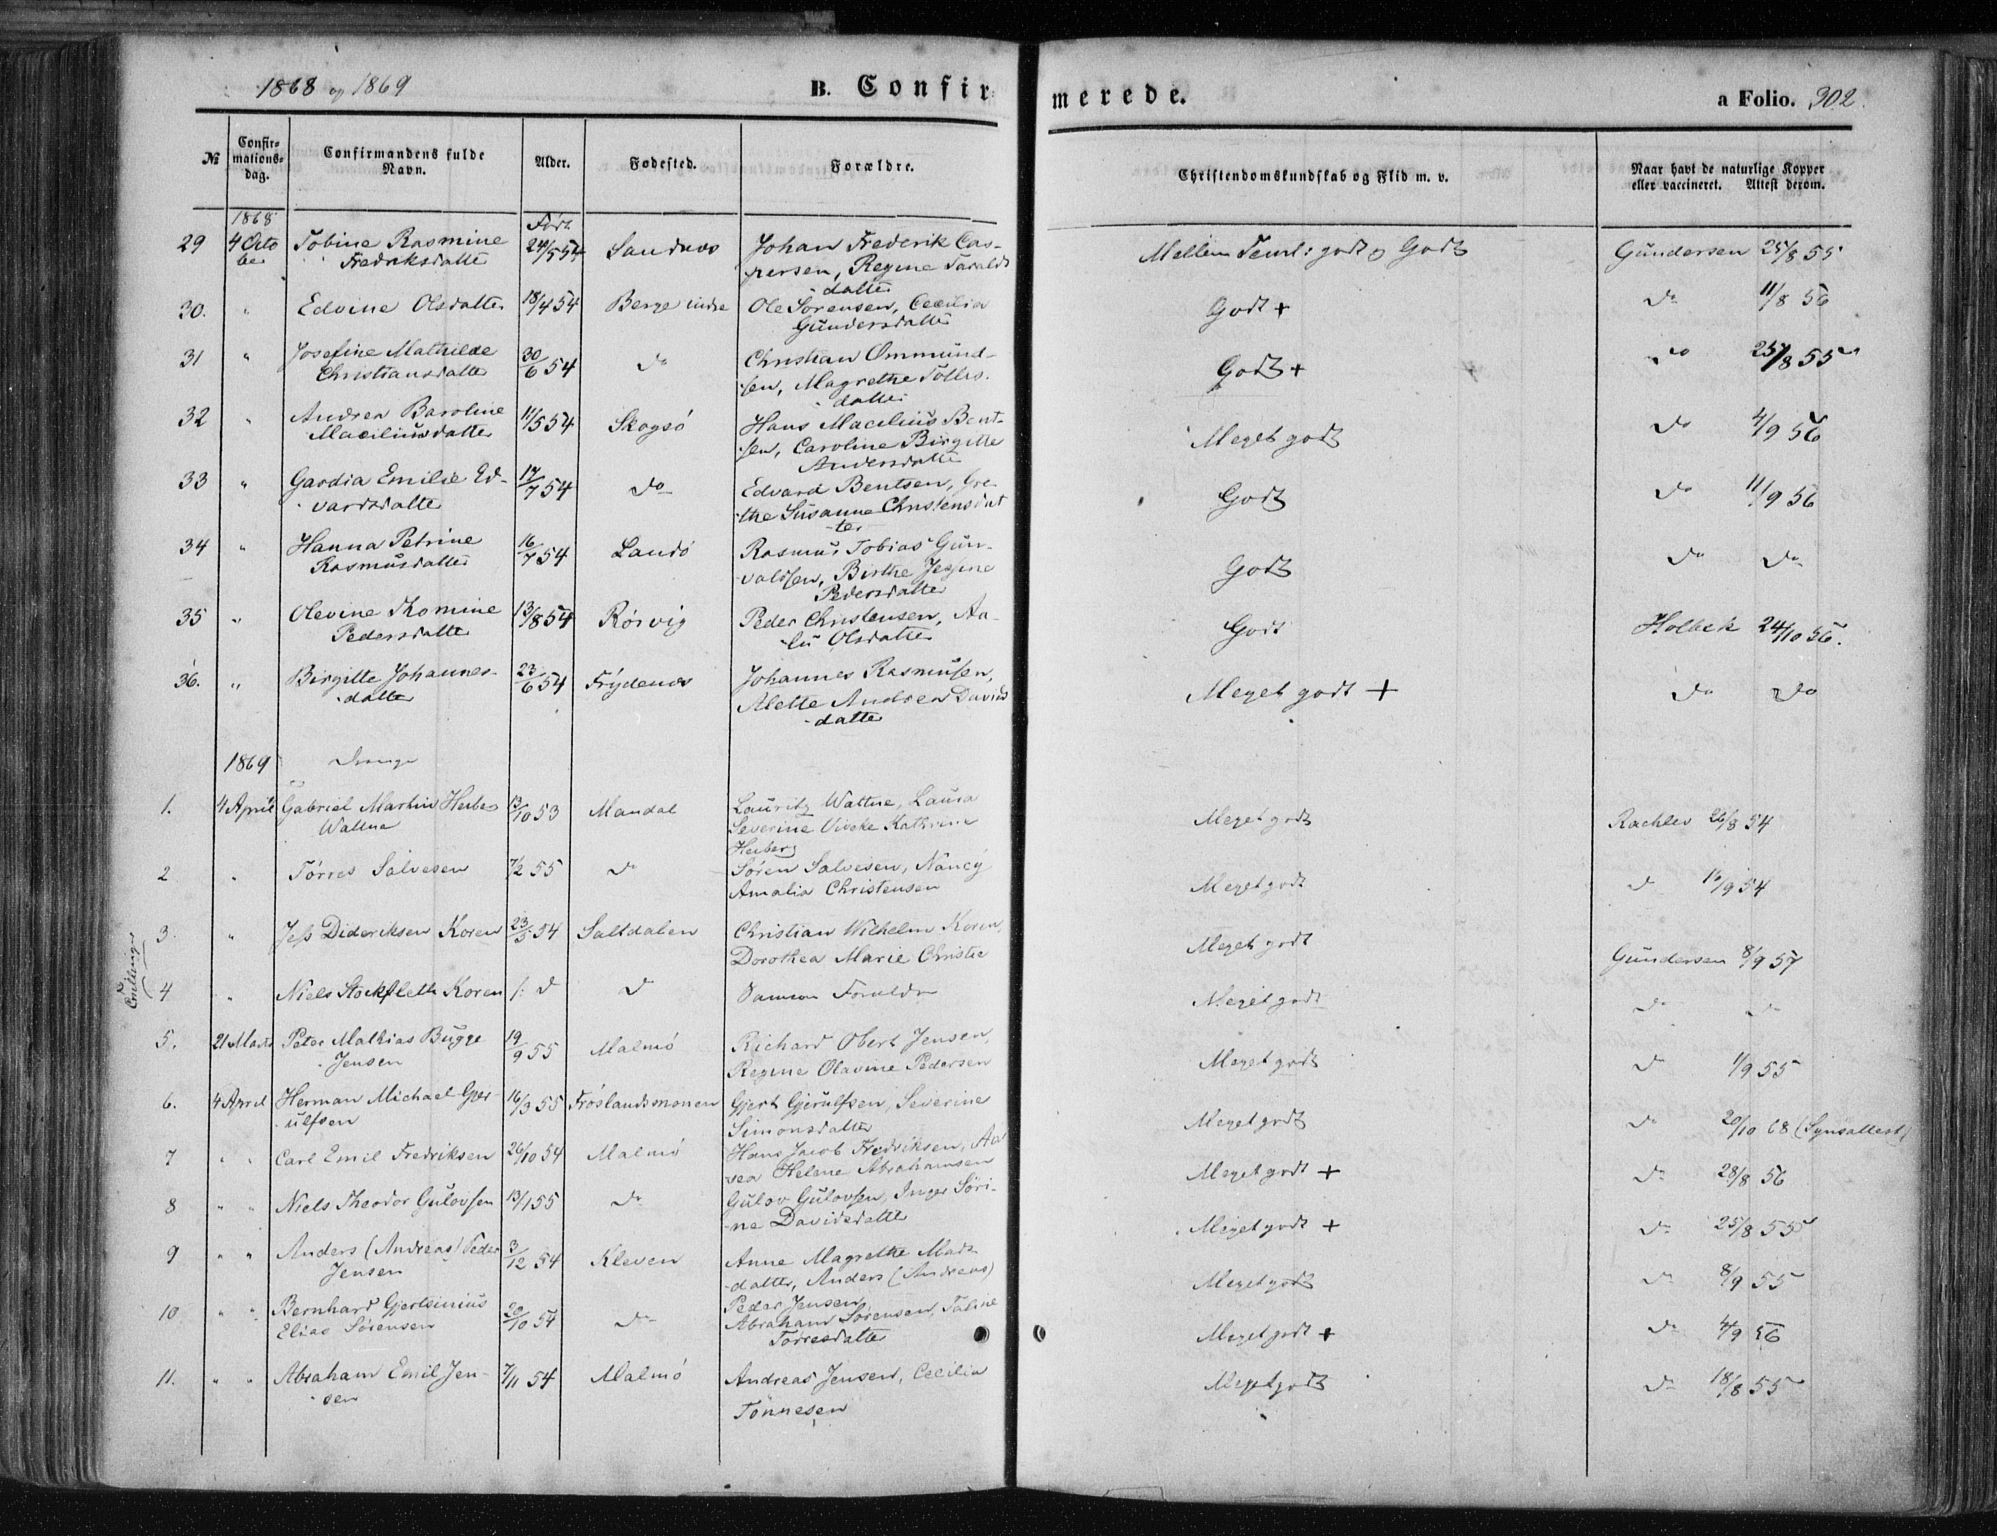 1868 og 1869
B. Confirmerede.
a Folio. 302.
№ Confirmations-dag. Confirmandens fulde Navn. Alder. Fødested. Forældre. Christendomskundskab og Flid m. v. Naar havt de naturlige Kopper eller vaccineret. Attest derom.
1868 Født
29 4 Octo Tobine Rasmine 24/5 54 Sandnæs Johan Frederik Cas- Mellem Teml: godt og Godt Gundersen 25/8 55
ber Fredriksdatter persen, Regine Taralds
datter
30. " Edvine Olsdatter 18/4 54 Berge indre Ole Sørensen, Cecilia Godt + Do 11/8 56
Gundersdatter
31 " Josefine Mathilde 30/6 54 Do Christian Ommund- Godt + Do 25/8 55
Christiansdatter sen, Magrethe Tollis.
datter
32 " Andrea Baroline 11/5 54 Skogsø Hans Macilius Bent- Meget godt Do 4/9 56
Maciliusdatter sen, Caroline Birgitte
Andersdatter
33 " Gardia Emilie Ed- 17/7 54 Do Edvard Bentsen, Gre- Godt Do 11/9 56
vardsdatter the Susanne Christensdat
ter
34 " Hanna Petrine 16/7 54 Landø Rasmus Tobias Gun- Godt Do Do
Rasmusdatter valdsen, Birthe Jesine
Pedersdatter
35 " Olevine Thomine 13/8 54 Rørvig Peder Christensen, Aa- Godt Holbek 24/10 56.
Pedersdatter Olsdatter
36. " Birgitte Johannes- 23/6 54 Frydenæs Johannes Rasmusen, Meget godt + Do Do
datter Alette Andrea Davids
datter
1869 Drenge
1. 4 April Gabriel Martin Herbe 13/10 53 Mandal Lauritz Wattne, Laura Meget godt Rachlev 26/8 54
Wattne Severine Viveke Kathrine
Herberg
2 " Tørres Salvesen 7/2 55 Do Søren Salvesen, Nancy Meget godt D 16/9 54
Amalia Christensen
3 " Jess Dideriksen Koren 23/5 54 Saltdalen Christian Wilhelm Koren, Meget godt Gundersen 8/9 57
Dorothea Marie Christie
Tvillinger
4 " Niels Stockfleth Koren D D Samme Forældre Meget godt D D
5. 21 Marts Peter Mathias Bugge 19/9 55 Malmø Richard Obert Jensen, Meget godt D 1/9 55
Jensen Regine Olavine Pedersen
6. 4 April Herman Michael Gjer- 16/3 55 Frøslandsmonen Gjert Gjerulfsen, Severine Meget godt Do 20/10 68 (Synsattest)
ulfsen Simonsdatter
7 " " Carl Emil Fredriksen 26/10 54 Malmø Hans Jacob Fredriksen, Meget godt + D 28/8 56
Helene Abrahamsen
8 " " Niels Theodor Gulovsen 13/1 55 Do Gulov Gulovsen, Inger Søri- Meget godt + D 25/8 55
ne Davidsdatter
9 " " Anders (Andreas) Peder 3/12 54 Kleven Anne Magrethe Mads Meget godt D 8/9 55
Jensen datter, Anders (Andreas)
Peder Jensen
10 " " Bernhard Gjertsinius 20/10 54 Do Abraham Sørensen, Taline Meget godt + D 4/9 56
Elias Sørensen Torresdatter
11. " " Abraham Emil Jen- 7/11 54 Malmø Andreas Jensen, Cecilia Meget godt D 18/8 55
sen Tønnesen